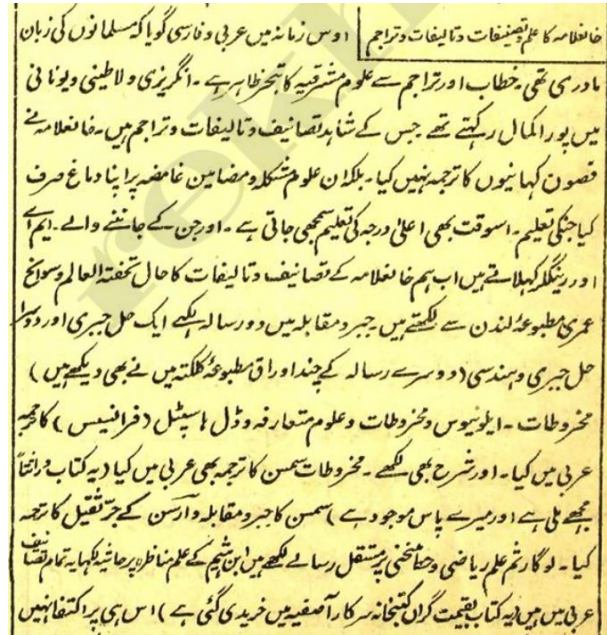 خانعلامہ کا علم و تصنیفات و تالیفات و تراجم
اوس زمانہ میں عربی و فارسی گویا کہ مسلمانوں کی زبان
مادری تھی۔ خطاب اور تراجم سے علوم مشرقیہ کا تبحر ظاہر ہے۔ انگریزی و لاطینی و یونانی
میں پورا کمال رکہتے تھے جس کے شاہد تصانیف و تالیفات و تراجم ہیں۔ خانعلامہ نے
قصون کہانیوں کا ترجمہ نہیں کیا۔ بلکہ ان علوم مشکلہ و مضامین غامضہ پر اپنا دماغ صرف
کیا جنکی تعلیم۔ اسوقت بھی اعلیٰ درجہ کی تعلیم سمجھی جاتی ہے۔ اور جن کے جاننے والے۔ ایم اے
اور رینگلر کہلاتے ہیں اب ہم خانعلامہ کے تصانیف و تالیفات کا حال تحفتہ العالم و سوانح
عمری مطبوعۂ لندن سے لکھتے ہیں۔ جبر و مقابلہ میں دو رسالہ لکہے ایک حل جبری اور دوسرا
حل جبری و ہندسی (دوسرے رسالہ کے چند اوراق مطبوعۂ کلکتہ میں نے بھی دیکھے ہیں)
مخروطات۔ ایلونیوس و مخروطات و علوم متعارفہ وڈل ہاسپٹل (فرانسیس) کا ترجمہ
عربی میں کیا۔ اور شرح بھی لکھے۔ مخروطات سمسن کا ترجمہ بھی عربی میں کیا (یہ کتاب وراثتاً
مجھے ملی ہے اور میرے پاس موجود ہے) سمسن کا جبر و مقابلہ و آرسن کے جر ثقیل کا ترجمہ
کیا۔ لوگارثم علم ریاضی و خط منحنی پر مستقل رسالے لکھے ہیں ابن ہثیم کے علم مناظرہ پر حاشیہ لکہا یہ تمام تصانیف
عربی میں ہیں (یہ کتاب بقیمت گراں کتبخانہ سرکار آصفیہ میں خریدی گئی ہے) اس ہی پر اکتفا نہیں